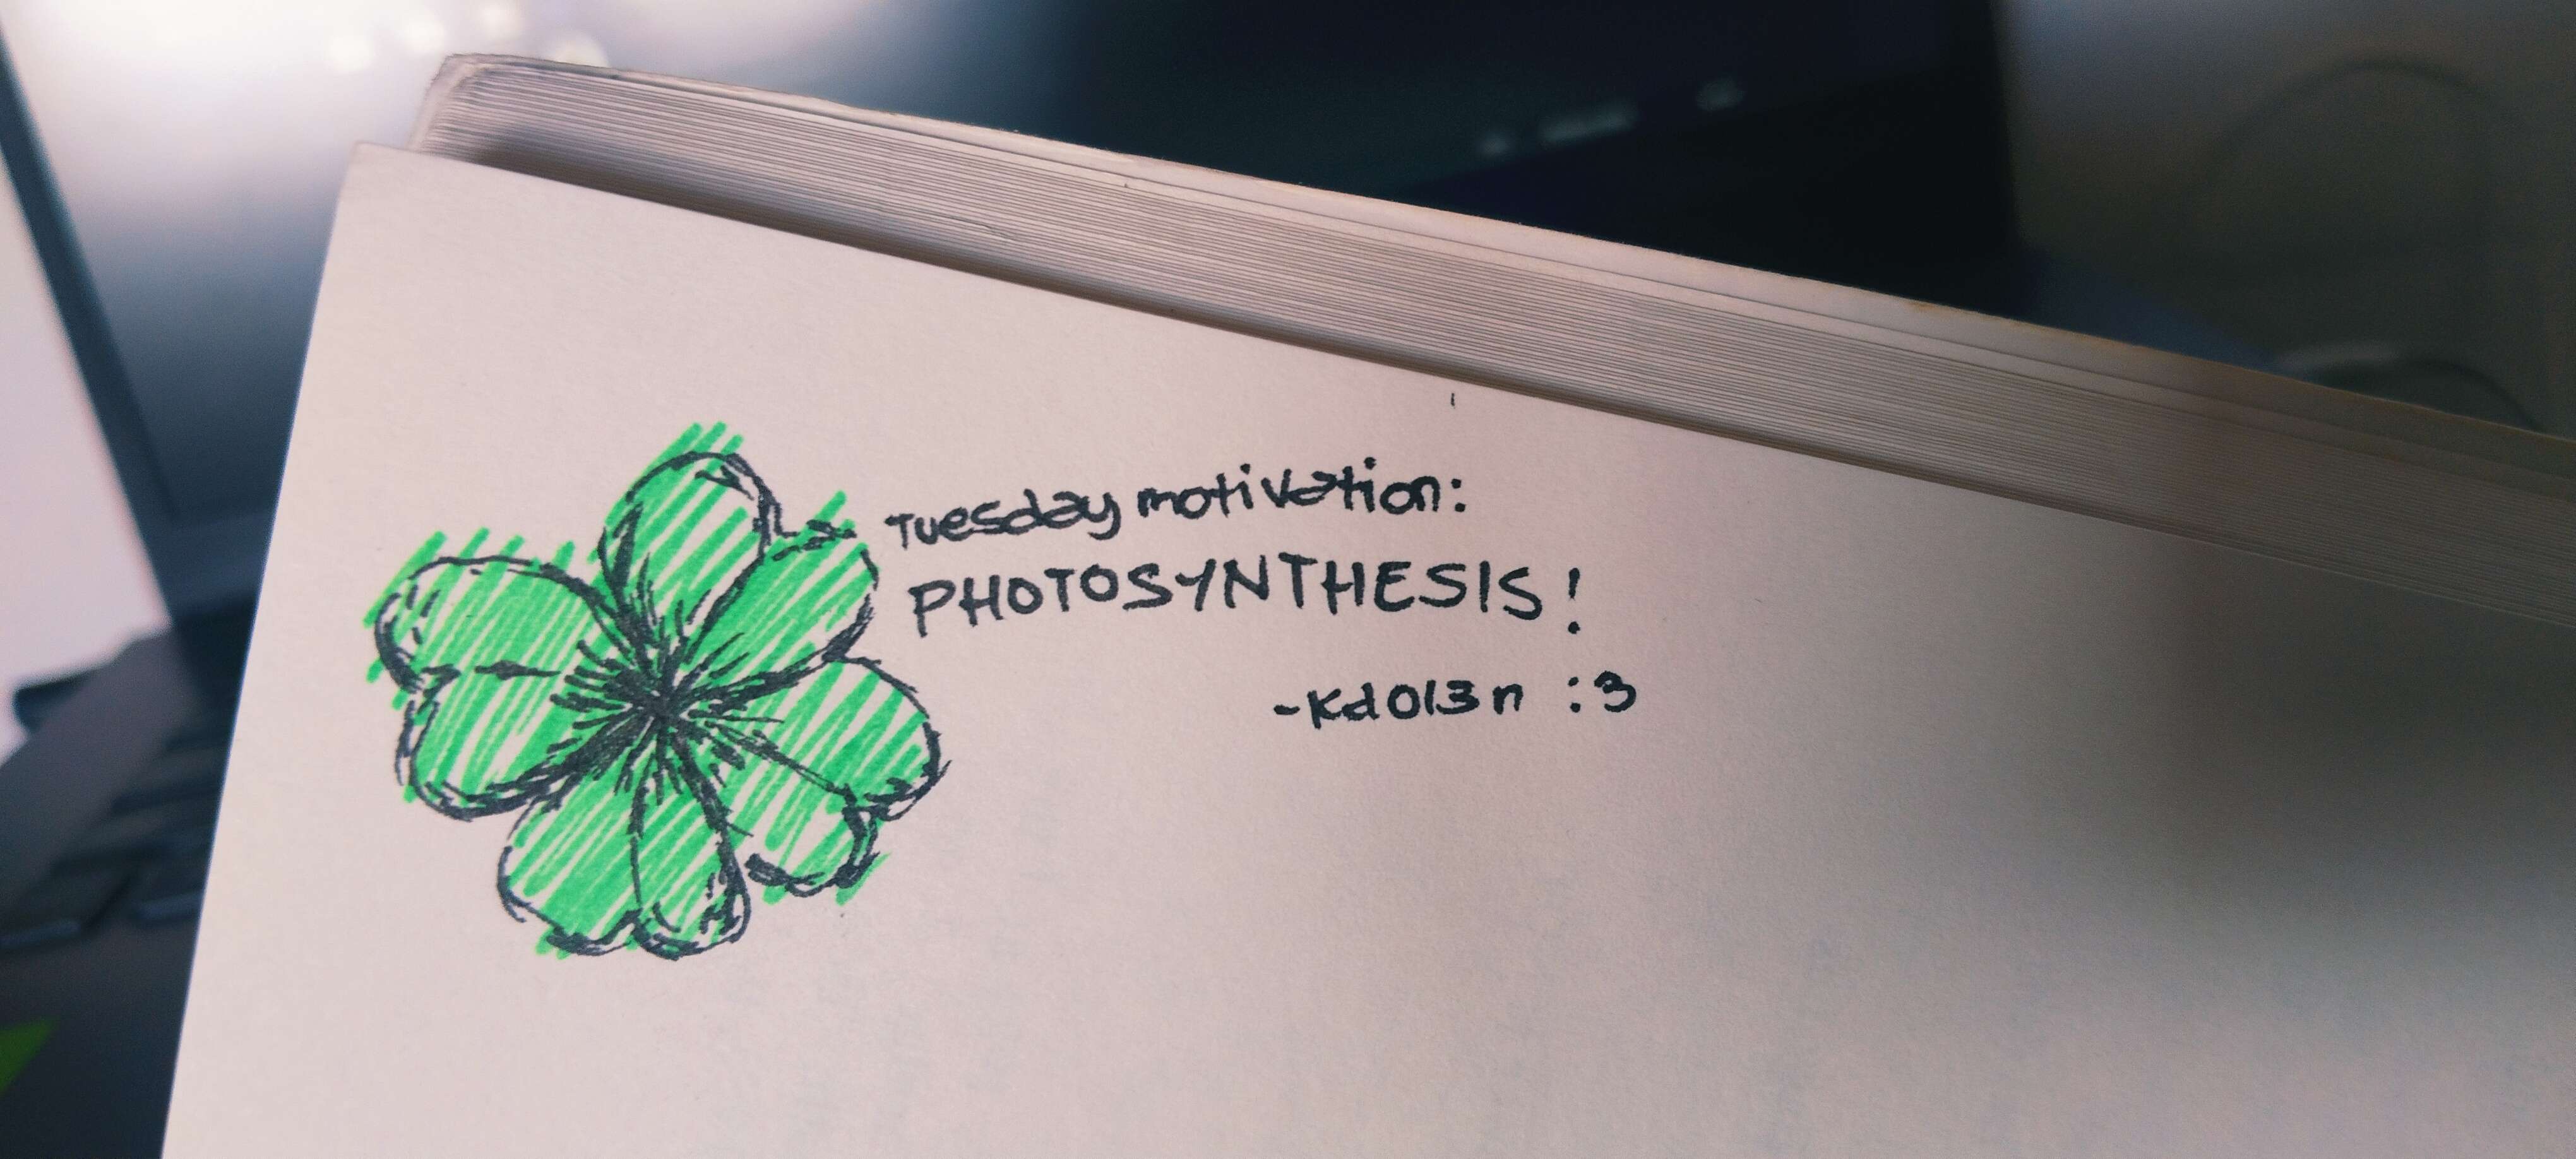 Tuesday motivation:
PHOTOSYNTHESIS!
-Kd013n :3